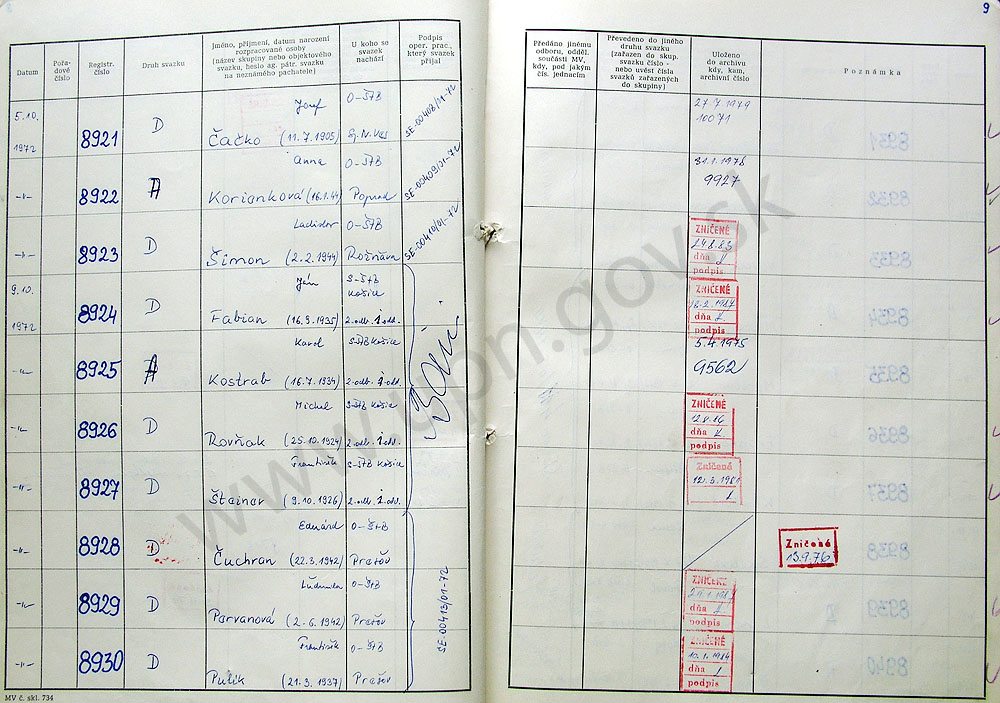 9
Datum
Pořa-
dové
číslo
Registr.
číslo
Druh svazku
Jméno, příjmení, datum narození
rozpracované osoby
(název skupiny nebo objektového
svazku, heslo ag. pátr. svazku
na neznámého pachatele)
U koho se
svazek
nachází
Podpis
oper. prac.,
který svazek
přijal
Předáno jinému
odboru, odděl.
součásti MV,
kdy, pod jakým
čís. jednacím
Převedeno do jiného
druhu svazku
(zařazen do skup.
svazku číslo -
nebo uvést čísla
svazků zařazených
do skupiny)
Uloženo
do archivu
kdy, kam,
archivní číslo
Poznámka
5.10.
1972
8921
D
Jozef
Čačko (11.7.1905)
O-ŠtB
Sp. N. Ves
SE-00408/01-72
27.7.1979
10071
-"-
8922
A
Anna
Koriankova (16.1.44)
O-ŠtB
Poprad
SE-00409/01-72
31.1.1978
9927
-"-
8923
D
Ladislav
Šimon (2.2.1944)
O-ŠtB
Rožňava
SE-00410/01-72
ZNIČENÉ
24.8.83
dňa
podpis
9.10.
1972
8924
D
Ján
Fabian (16.9.1935)
S-ŠtB
Košice
2.odb. 1.odd.
ZNIČENÉ
18.2.1987
dňa
podpis
-"-
8925
A
Karol
Kostrab (16.7.1934)
S-ŠtB Košice
2.odb. 1.odd.
5.4.1975
9562
-"-
8926
D
Michal
Rovňak (25.10.1924)
S-ŠtB Košice
2.odb. 1.odd.
ZNIČENÉ
dňa
podpis
-"-
8927
D
František
Štainer (9.10.1926)
S-ŠtB Košice
2.odb. 1.odd.
Zničené
12.3.1981
-"-
8928
D
Eduard
Čuchran (22.3.1942)
O-ŠtB
Prešov
Zničené
13.9.76
-"-
8929
D
Ľudmila
Parvanová (2.6.1942)
O-ŠtB
Prešov
SE-00413/01-72
ZNIČENÉ
dňa
podpis
-"-
8930
D
František
Pulik (21.3.1937)
O-ŠtB
Prešov
ZNIČENÉ
10.1.1984
dňa
podpis
MV č. skl. 734
www.upn.gov.sk